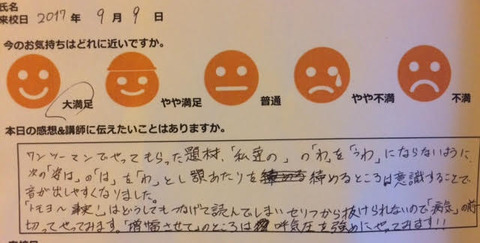 氏名
来校日 2017年 9月 9日
今のお気持ちはどれに近いですか。
大満足 やや満足 普通 やや不満 不満
本日の感想&講師に伝えたいことはありますか。
ワンツーマンでやってもらった題材、「私達の」の「わ」を「うわ」にならないように、
次の「は」を「わ」とし頭あたりを締めるところは意識することで
音が出しやすくなりました。
はどうしてもつなげて読んでしまいセリフから抜けられないので「病気」の前
切ってやってみます。「増幅させて」のところは呼気圧を強めにやってみます!!